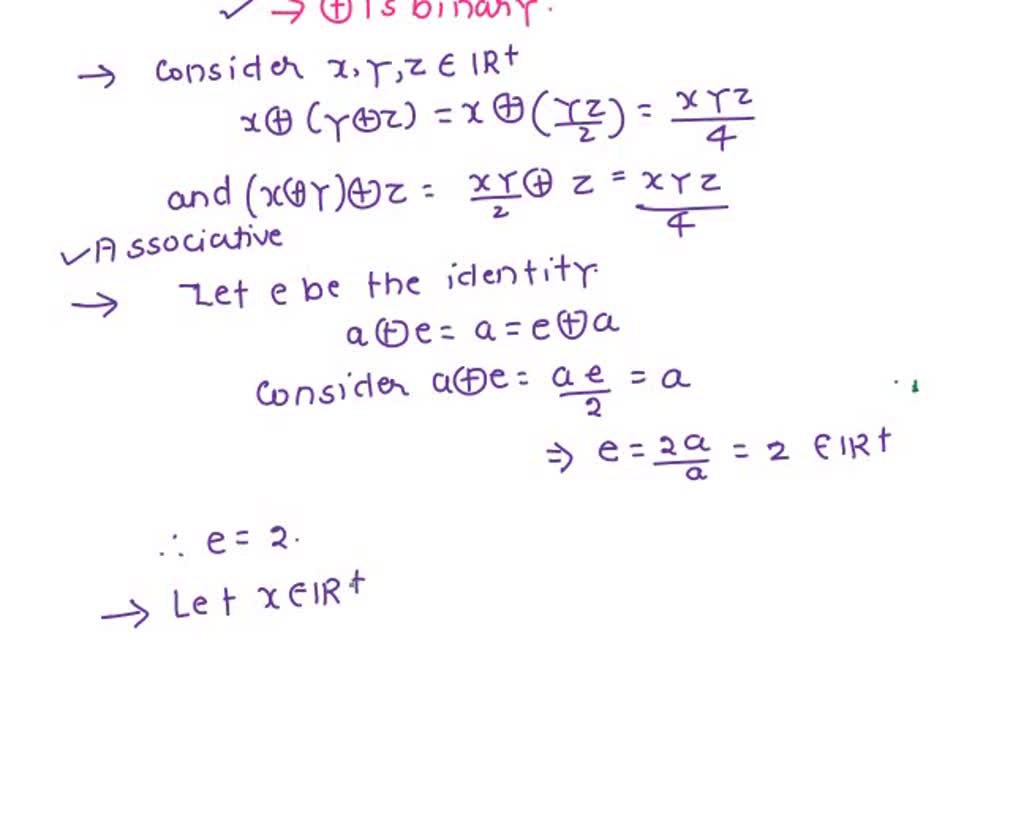 ✓ → ⊕ is binary.
→ Consider x, y, z ∈ IR⁺
x⊕(y⊕z) = x⊕(yz/2) = xyz/4
and (x⊕y)⊕z = xy/2 ⊕ z = xyz/4
✓ Associative
→ Let e be the identity.
a⊕e = a = e⊕a
Consider a⊕e = ae/2 = a
⇒ e = 2a/a = 2 ∈ IR⁺
∴ e = 2.
→ Let x ∈ IR⁺